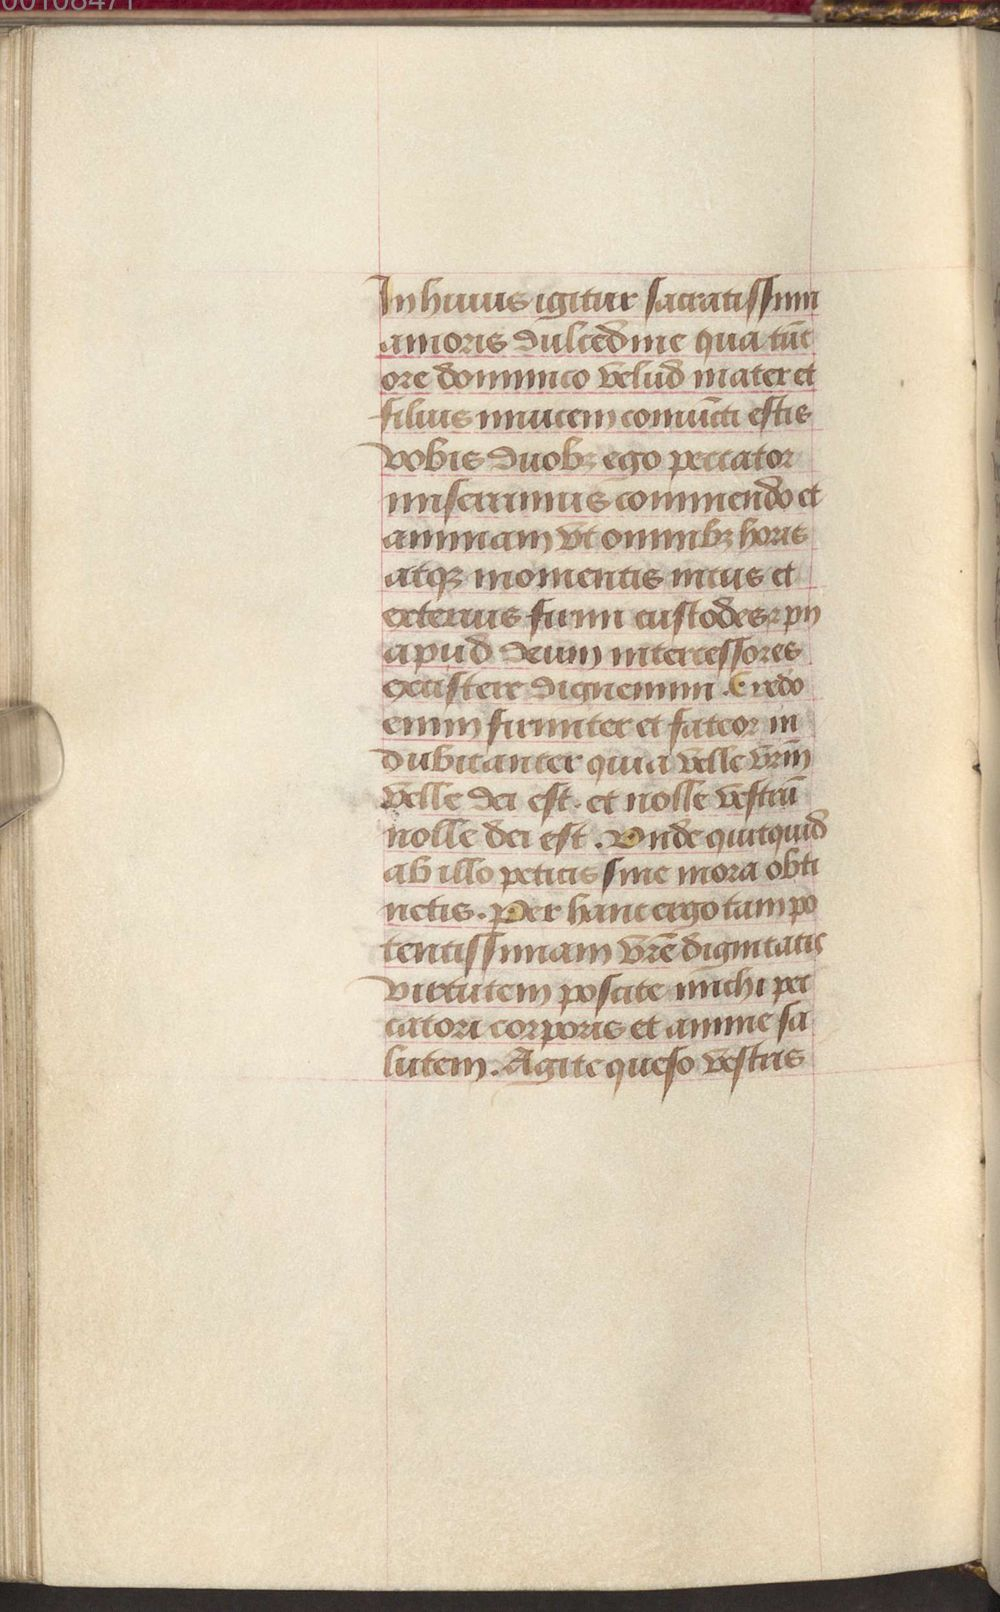 00108471
In huius igitur sacratissimi
amoris dulcedine qua tūc
ore dominico velud mater et
filius inuicem coniūcti estis
vobis duobꝫ ego peccator
miserrimus commendo et
animam vt omnibꝫ horis
atqꝫ momentis intus et
exterius firmi custodes ꝛ pij
apud deum intercessores
existere dignemini. Credo
enim firmiter et fateor in
dubitanter quia velle vr̄m
velle dei est. et nolle vestrū
nolle dei est. Unde quitquid
ab illo petitis sine mora obti
netis. Per hanc ergo tam po
tentissimam vr̄e dignitatis
virtutem poscite michi pec
catori corporis et anime sa
lutem. Agite queso vestris